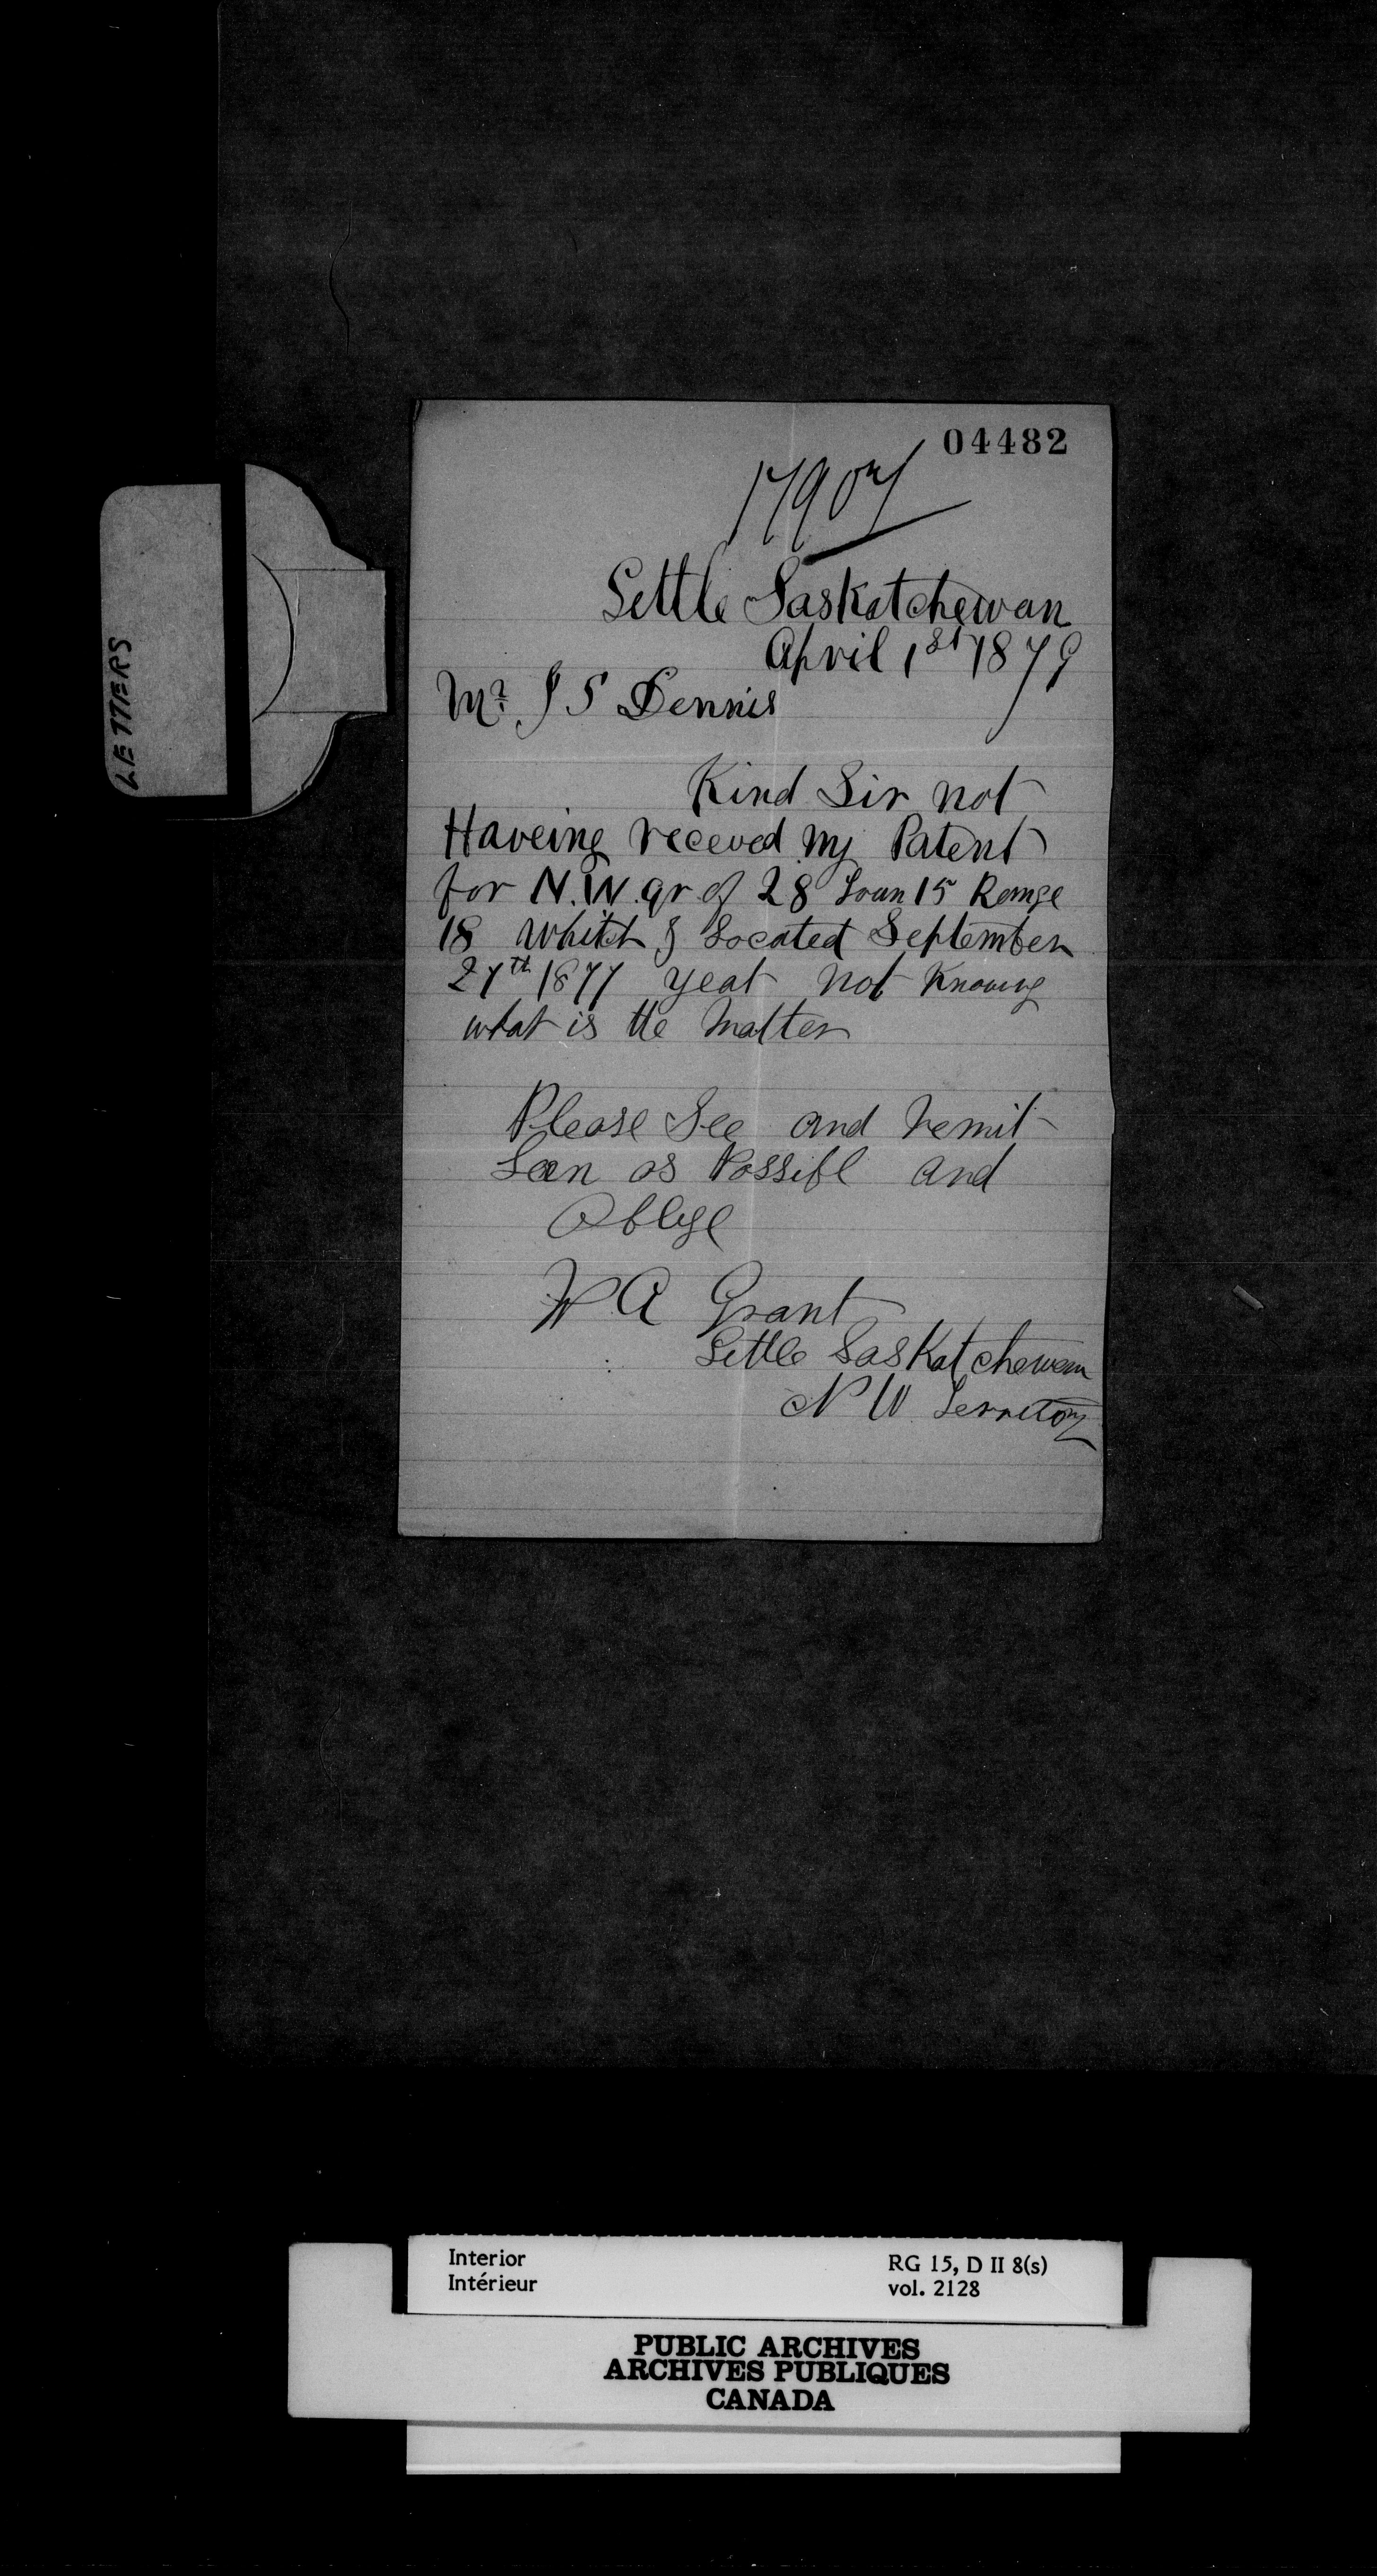 LETTERS
04482
17907
Little Saskatchewan
April 1st 1879
Mr J S Dennis
Kind Sir not
Haveing receved my Patent
for N.W. qr of 28 Town 15 Range
18 Whitch I Located September
27th 1877 yeat not Knowing
what is the matter
Please See and remit
Soon as Possibl and
Oblige
W A Grant
Little Saskatchewan
N W Territory
Interior
Intérieur
RG 15, D II 8(s)
vol. 2128
PUBLIC ARCHIVES
ARCHIVES PUBLIQUES
CANADA